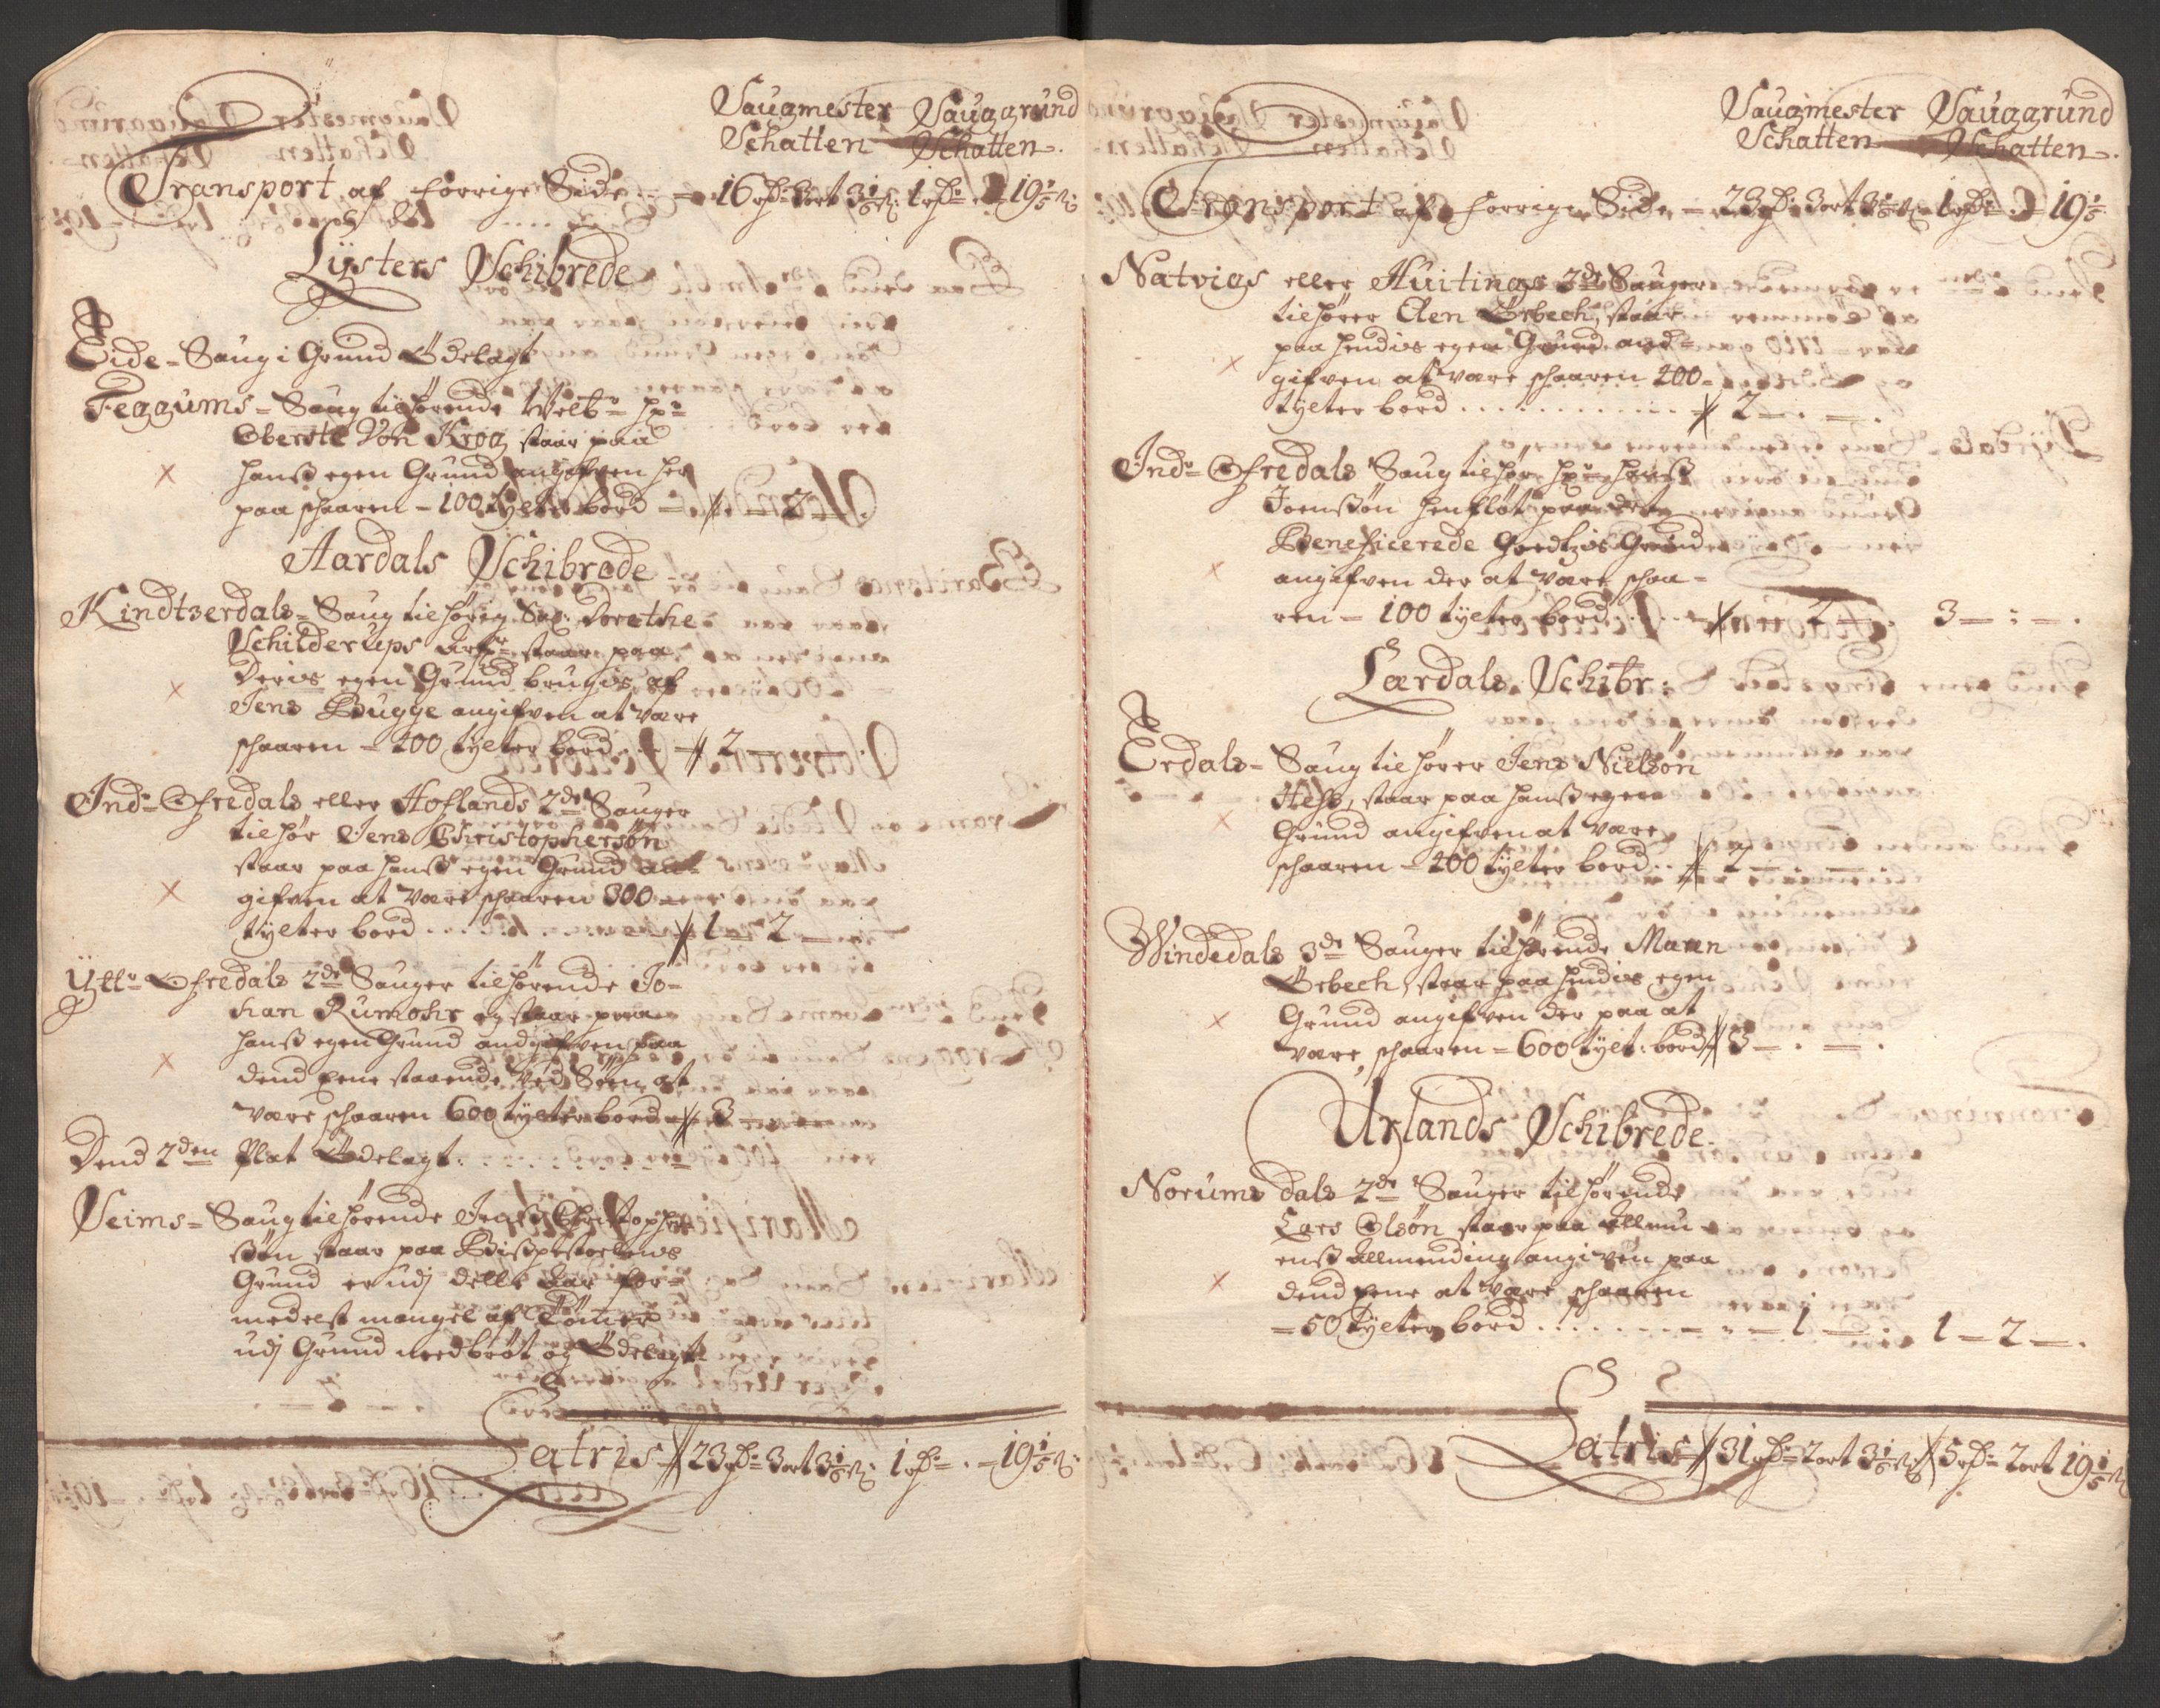 Saugmester Sauggrund
Schatten Schatten
Transport af forrige Side - 16 rd 3 ort 3 1/5 s: 1 rd - 19 1/5 s:
Lÿsters Schibrede
Eide - Saug i Grund Ødelagt
Feggums - Saug tilhørende Welb: Hr:
Oberste Von Krog staar paa
hanss egen Grund angifven her
paa schaaren - 100 tylter bord - 2 -
Aardals Schibrede
Kindtzerdals - Saug tilhørig Sal: Dorethe
Schilderups staar paa
Deris egen Grund brugis af
Jens Bugge angifven at være
schaaren - 200 tylter bord - 2 -
Ind: Ofredals eller Hoflands 2de Sauger
tilhør Jens Christophersøn
staar paa hanss egen Grund an-
gifven at være schaaren 300
tylter bord . . . 1 - 2 -
Ytt: Ofredals 2de Sauger tilhørende Jo-
han Rumohr og staar paa
hanss egen Grund andgifven paa
dend eene staaende ved Søen at
være schaaren 600 tylter bord - 3 -
Dend 2den Plat Ødelagt . . .
Seims - Saug tilhørende Jenss Christopher
søn staar paa Bispestoelens
Grund er udj dette Aar for-
medelst mangel af Tømer
udj Grund needbrøt og Ødelagt
Latris 23 rd 3 ort 3 1/5 s: 1 rd - . - 19 1/5 s:
Saugmester Sauggrund
Schatten Schatten
Transport af forrige Side - 23 rd: 3 ort 3 1/5 s 1 rd - . - 19 1/5
Natvigs eller Huitings 2de Sauger
tilhører Elen Ørbech, staar
paa hendis egen Grund and-
gifven at være schaaren 200
tylter bord . . . 2 - . - .
Ind: Ofredals Saug tilhør Hr: Hanss
Joenssøn Henfløt paa det
Beneficerede Goedtzis Grund
angifven der at være schaa-
ren - 100 tylter bord . . . 2 - . 3 - : - .
Lærdals Schibr:
Erdals - Saug tilhører Jens Nielsøn
Hess, staar paa hanss egen
Grund angifven at være
schaaren - 200 tylter bord . . 2 -
Windedals 3de Sauger tilhørende Maren
Ørbech, staar paa hendis egen
Grund angifven der paa at
være, schaaren - 600 tylt: bord 3 - . - .
Urlands Schibrede
Norums dals 2de Sauger tilhørende
Lars Olsøn staar paa Allmu-
enss Allmending angiven paa
dend eene at være schaaren
- 50 tylter bord . . . 1 - . 1 - 2 - .
Latris 31 rd 2 ort 3 1/5 s 5 rd 2 ort 19 1/5 s